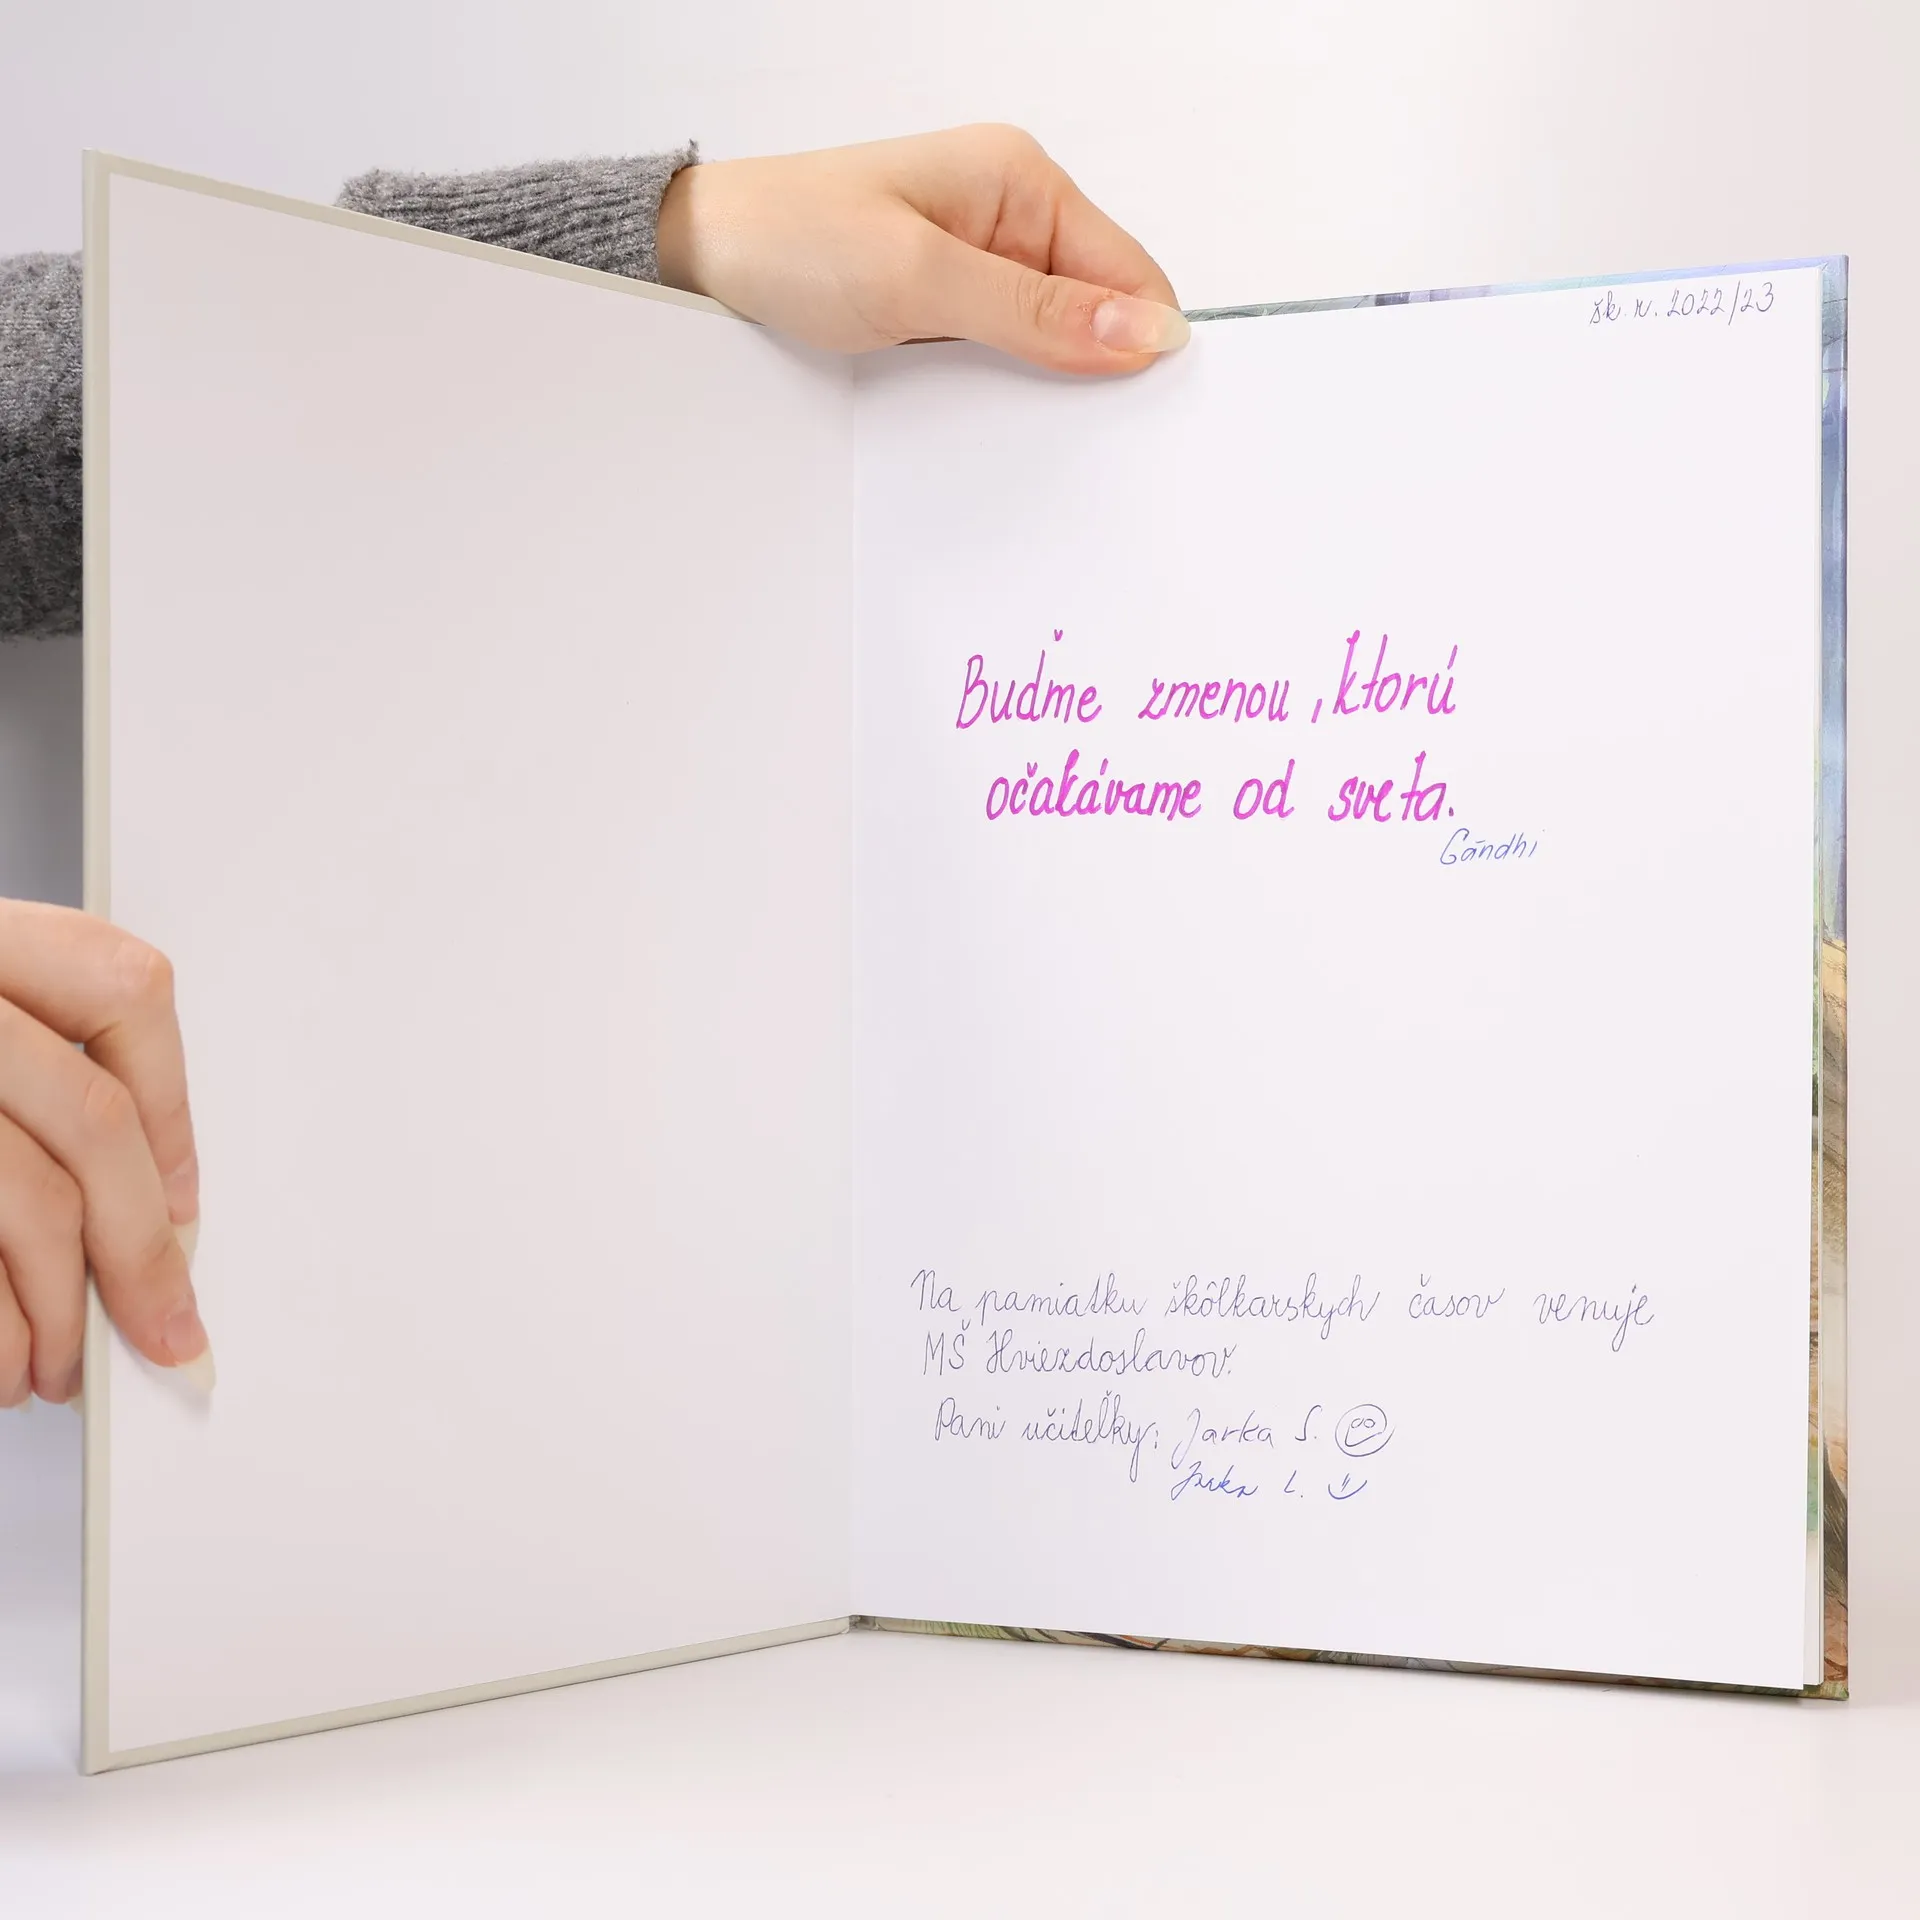 šk. r. 2022/23
Buďme zmenou, ktorú
očakávame od sveta.
Gándhi
Na pamiatku škôlkarských časov venuje
MŠ Hviezdoslavov.
Pani učiteľky: Jarka S.
Jarka L.